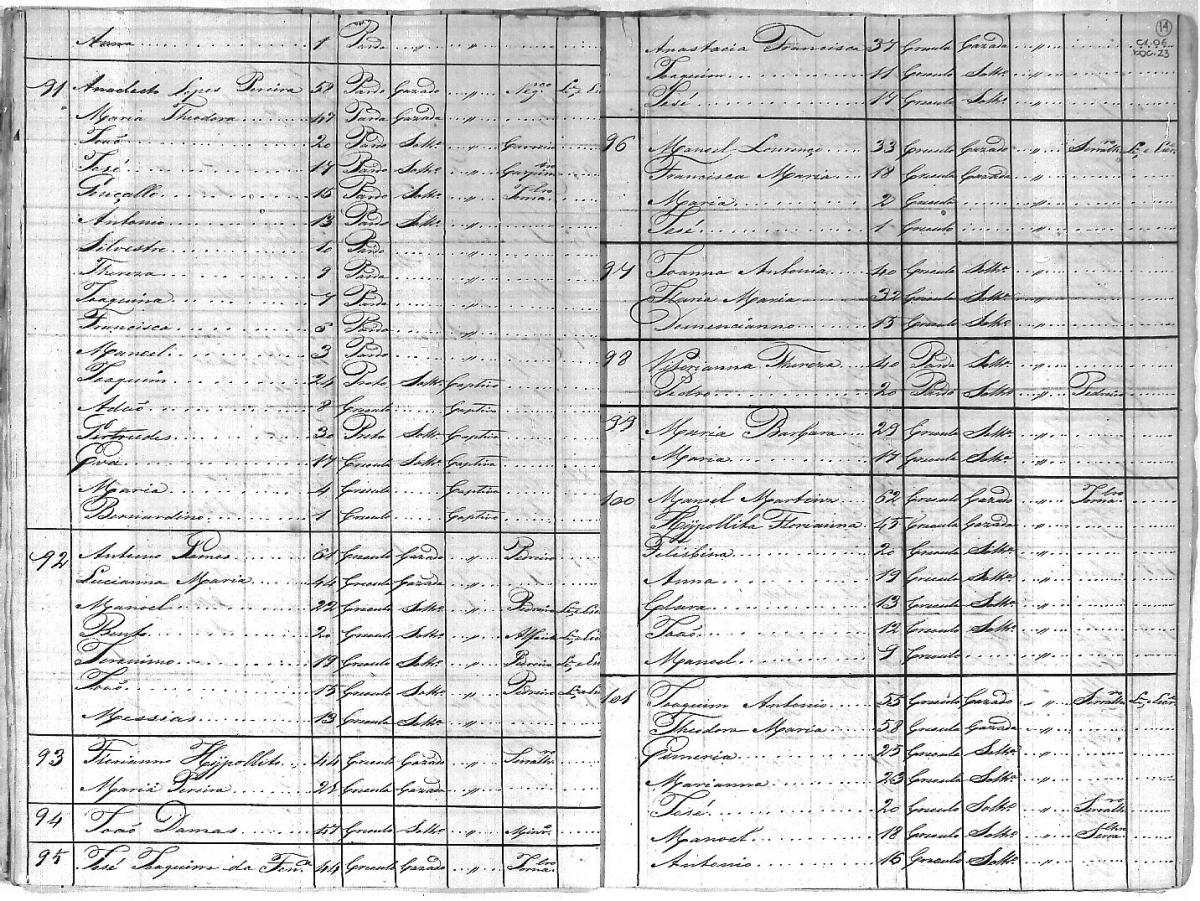 Anna 1 Parda " "
91 Anacleto Lopes Pereira 58 Pardo Cazado " Nego.co
Maria Theodora 47 Parda Cazada "
João 20 Pardo Soltro. "
José 17 Pardo Soltro. "
Gonçallo 16 Pardo Soltro. "
Antonio 13 Pardo Soltro. "
Silvestre 10 Pardo "
Thereza 9 Parda "
Joaquina 7 Parda "
Francisca 5 Parda "
Manoel 3 Pardo "
Joaquim 24 Preto Soltro. Captivo
Adão 8 Creoulo Captivo
Gertrudes 30 Preta Soltra. Captiva
Eva 17 Creoula Soltra. Captiva
Maria 4 Creoula Captiva
Bernardino 1 Creoulo Captivo
92 Antonio Damas 61 Creoulo Cazado "
Lucianna Maria 44 Creoula Cazada "
Manoel 22 Creoulo Soltro. " Pedreiro
Bento 20 Creoulo Soltro. " Alfaiate
Jeronimo 19 Creoulo Soltro. " Pedreiro
João 15 Creoulo Soltro. " Pedreiro
Messias 13 Creoulo Soltro. "
93 Florianno Hyppollito 44 Creoulo Cazado "
Maria Pereira 28 Creoula Cazada "
94 João Damas 57 Creoulo Soltro. " Minro.
95 José Joaquim da Fonca. 44 Creoulo Cazado " Jornalro.
14
CX.06
DOC.23
Anastacia Francisca 37 Creoula Cazada "
Joaquim 11 Creoulo Soltro. "
José 17 Creoulo Soltro. "
96 Manoel Lourenço 33 Creoulo Cazado "
Francisca Maria 18 Creoula Cazada "
Maria 2 Creoula "
José 1 Creoulo "
97 Joanna Antonia 40 Creoula Soltra. "
Maria 32 Creoula Soltra. "
15 Creoulo Soltro. "
98 Thereza 40 Parda Soltra. "
Pedro 20 Pardo Soltro. " Pedreiro
99 Maria Barbara 29 Creoula Soltra. "
Maria 17 Creoula Soltra. "
100 Manoel Martins 62 Creoulo Cazado " Jornalro.
Hyppollita Florianna 45 Creoula Cazada "
Felisbina 20 Creoula Soltra. "
Anna 19 Creoula Soltra. "
Clara 13 Creoula Soltra. "
João 12 Creoulo Soltro. "
Manoel 9 Creoulo "
101 Joaquim Antonio 55 Creoulo Cazado "
Theodora Maria 58 Creoula Cazada "
25 Creoula Soltra. "
Marianna 23 Creoula Soltra. "
José 20 Creoulo Soltro. "
Manoel 18 Creoulo Soltro. "
Antonio 16 Creoulo Soltro. "